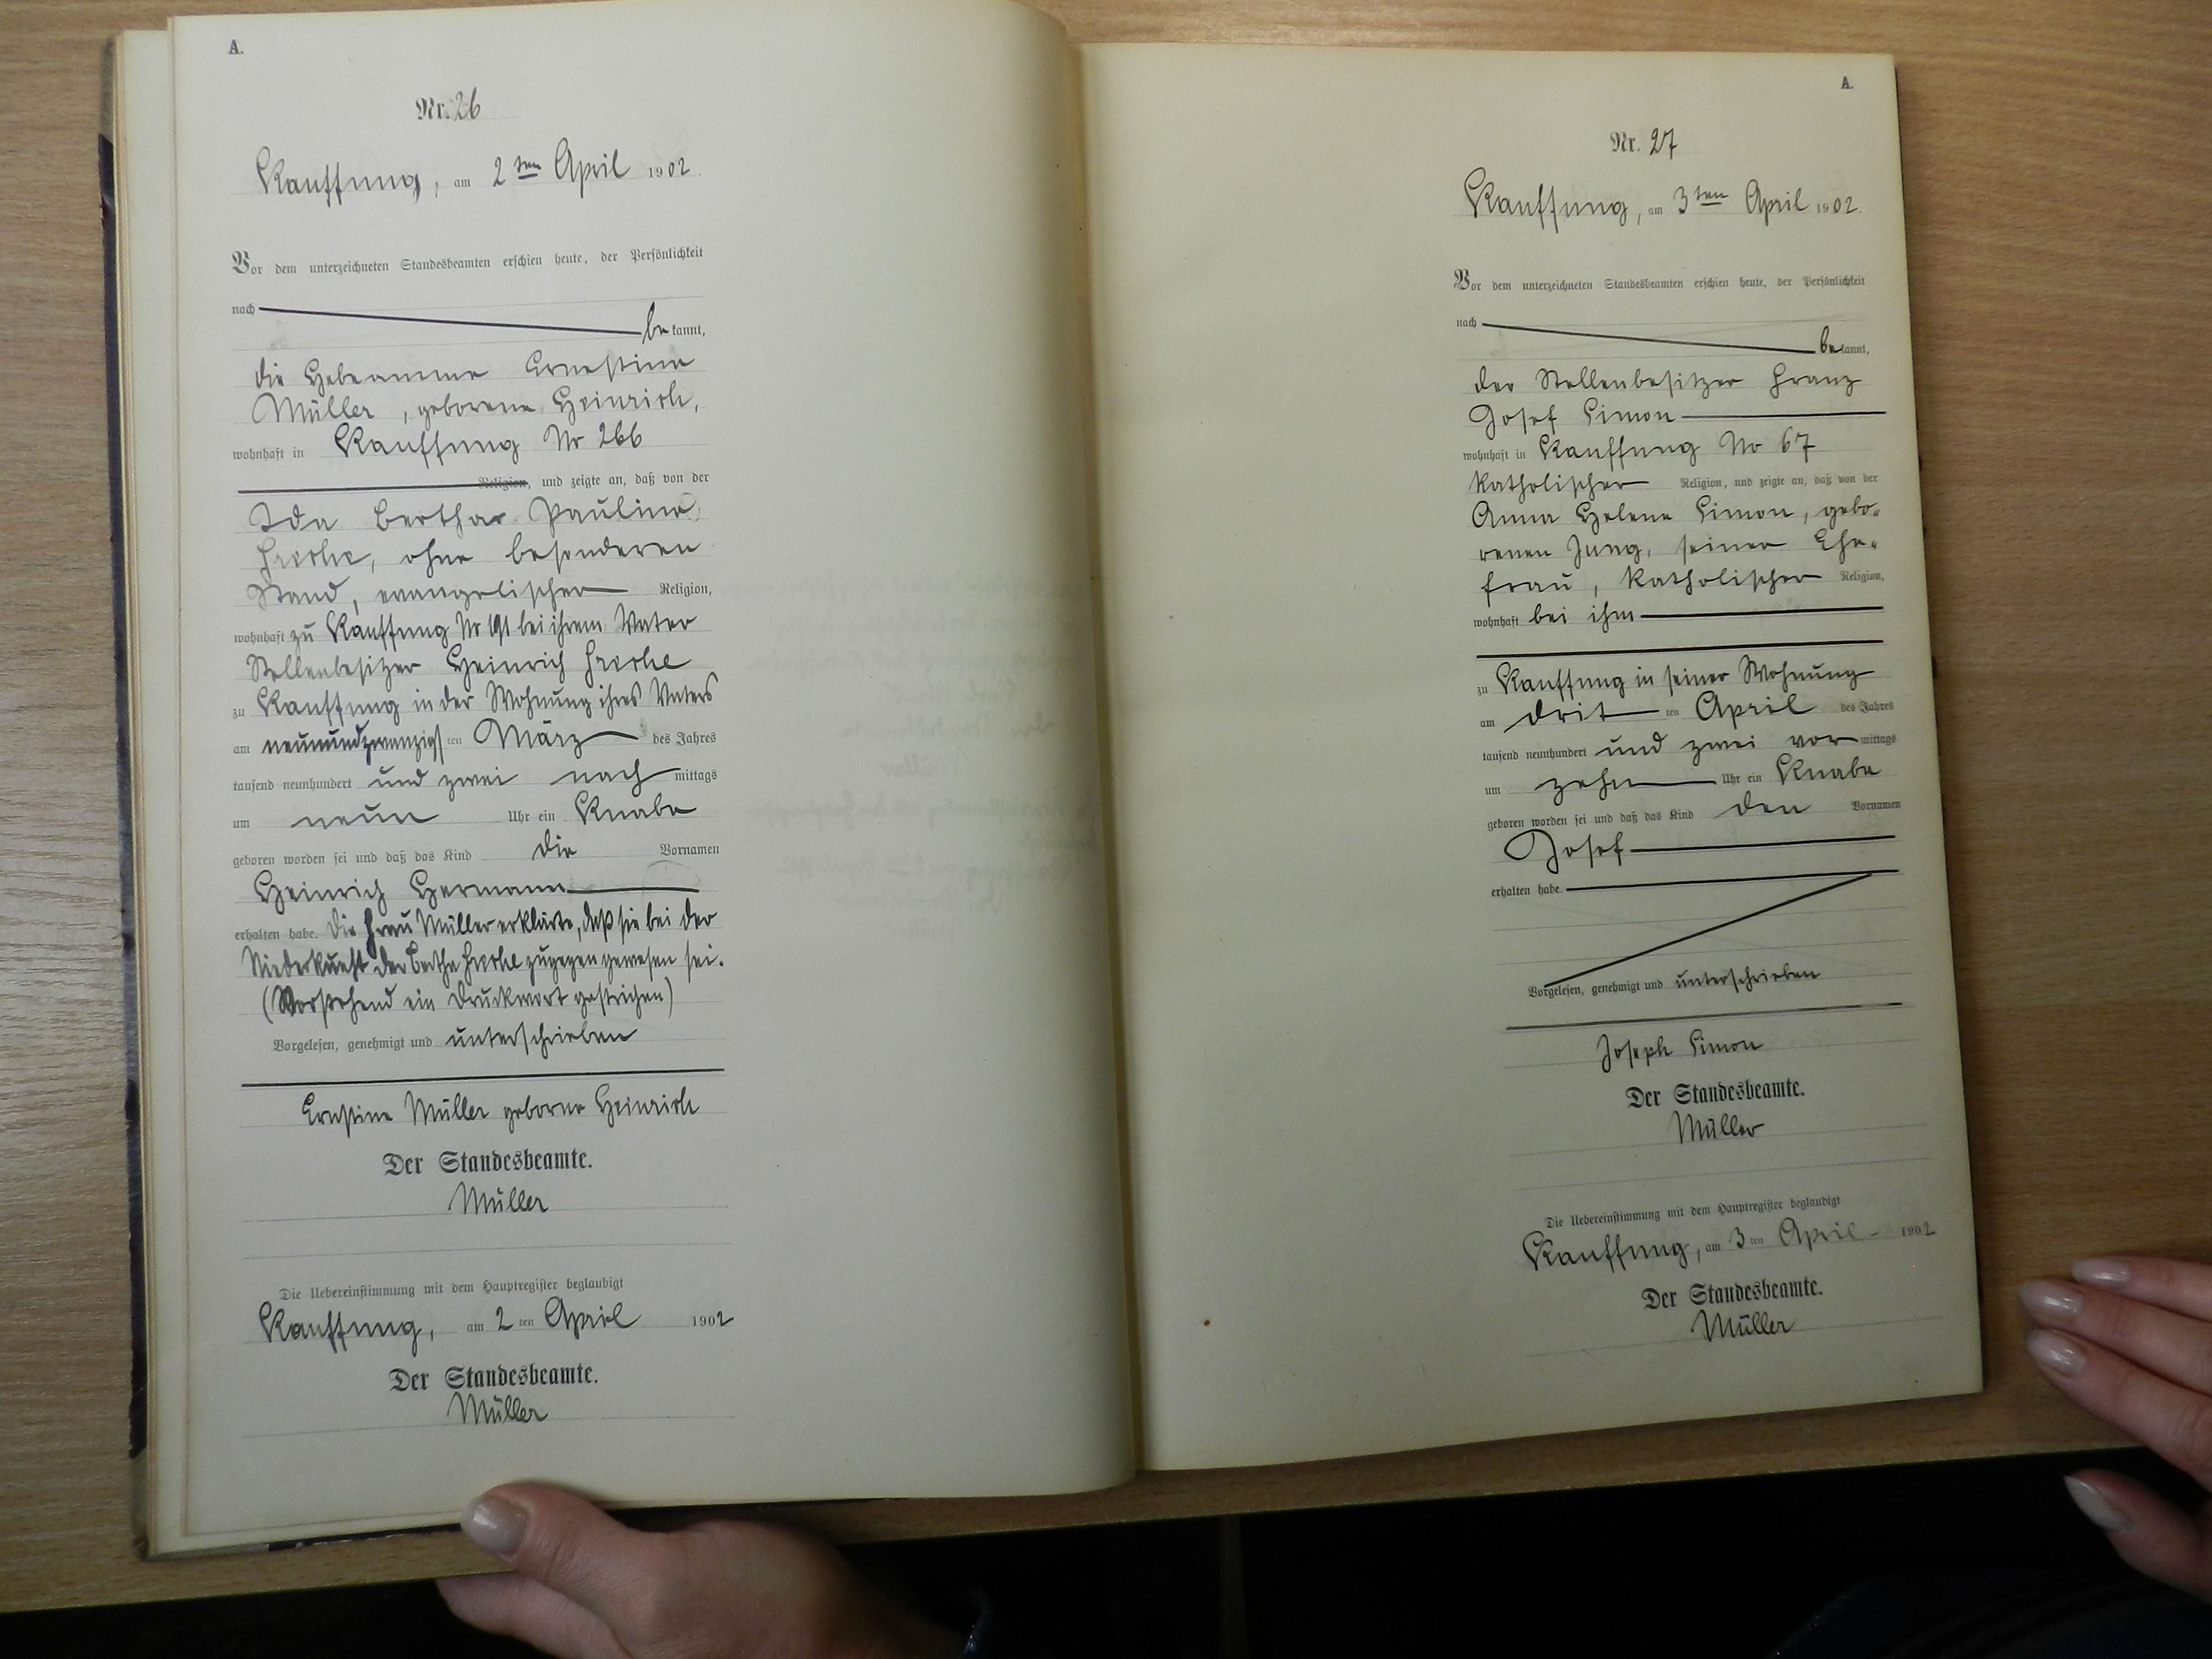 A.
Nr. 26
Kauffung, am 2ten April 1902.
Vor dem unterzeichneten Standesbeamten erschien heute, der Persönlichkeit
nach bekannt,
die Hebeamme Ernestine
Müller, geborene Heinrich,
wohnhaft in Kauffung Nr 266
Religion, und zeigte an, daß von der
Ida Bertha Pauline
ohne besonderen
Stand, evangelischer Religion,
wohnhaft zu Kauffung Nr 191 bei ihrem Vater
Stellenbesitzer Heinrich
zu Kauffung in der Wohnung ihres Vaters
am neunundzwanzigsten März des Jahres
tausend neunhundert und zwei nachmittags
um neun Uhr ein Knabe
geboren worden sei und daß das Kind die Vornamen
Heinrich Hermann
erhalten habe. Die Frau Müller erklärte, daß sie bei der
Niederkunft der Bertha zugegen gewesen sei.
(Vorstehend ein Druckwort gestrichen)
Vorgelesen, genehmigt und unterschrieben
Ernstine Müller geborne Heinrich
Der Standesbeamte.
Müller
Die Uebereinstimmung mit dem Hauptregister beglaubigt
Kauffung, am 2ten April 1902
Der Standesbeamte.
Müller
A.
Nr. 27
Kauffung, am 3ten April 1902.
Vor dem unterzeichneten Standesbeamten erschien heute, der Persönlichkeit
nach bekannt,
der Stellenbesitzer Franz
Josef Simon
wohnhaft in Kauffung No 67
katholischer Religion, und zeigte an, daß von der
Anna Helene Simon, gebo-
renen Jung, seiner Ehe-
frau, katholischer Religion,
wohnhaft bei ihm
zu Kauffung in seiner Wohnung
am dritten April des Jahres
tausend neunhundert und zwei vormittags
um zehn Uhr ein Knabe
geboren worden sei und daß das Kind den Vornamen
Josef
erhalten habe.
Vorgelesen, genehmigt und unterschrieben
Joseph Simon
Der Standesbeamte.
Müller
Die Uebereinstimmung mit dem Hauptregister beglaubigt
Kauffung, am 3ten April 1902
Der Standesbeamte.
Müller